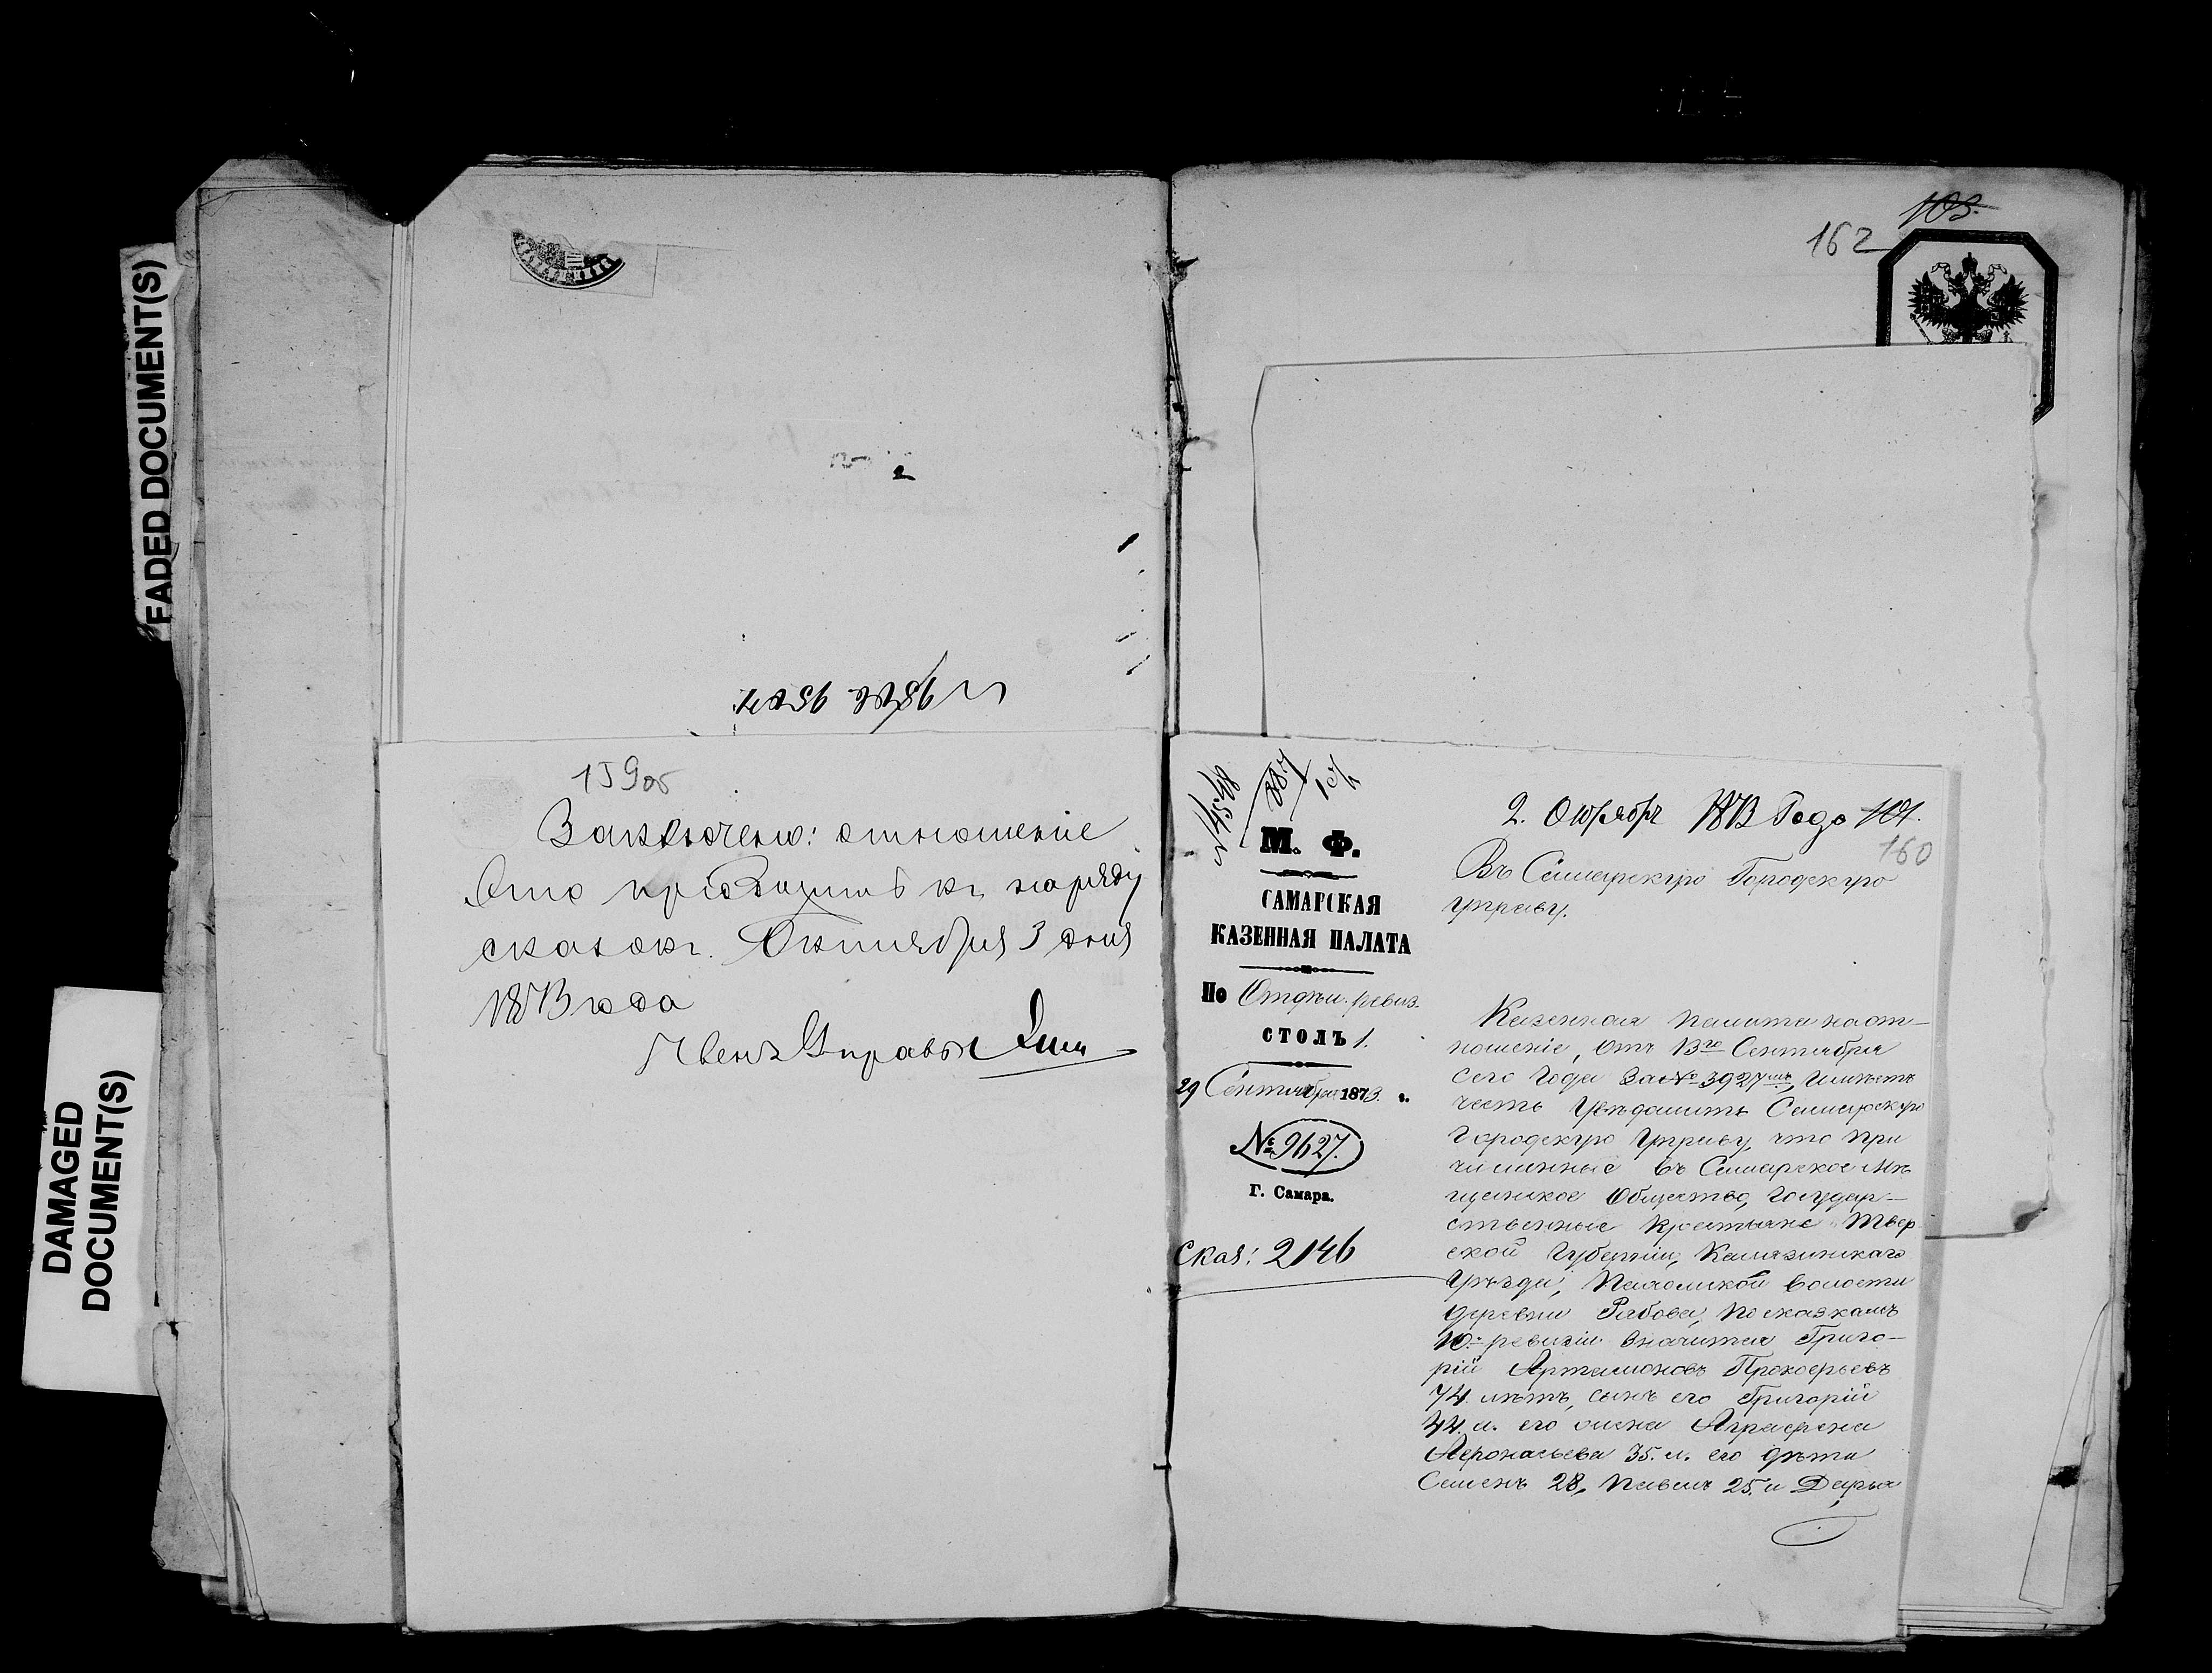 FADED DOCUMENT(S)
DAMAGED
DOCUMENT(S)
159об
Заключено: отношение
это приобщить къ наряду
сказокъ. Октября 3 дня
1873 года
Членъ Управы
103.
162
№ 4548
М. Ф.
САМАРСКАЯ
КАЗЕННАЯ ПАЛАТА
По Отдѣл. ревиз.
СТОЛЪ 1.
29 Сентября 1873. г.
№ 9627.
Г. Самара.
Ская: 2146
2. Октября 1873 Года 104.
160
Въ Самарскую Городскую
Управу.
Казенная Палата на от-
ношеніе, отъ 13го Сентября
сего Года За № 3927мъ, Имѣетъ
честь Увѣдомить Самарскую
Городскую Управу, что при
численные въ Самарское Мѣ
щанское Общество, Государ-
ственные Крестьяне Твер
ской Губерніи, Калязинскаго
Уѣзда, волости
деревни Рябова, по сказкамъ
10й ревизіи значится Григо-
рій Артамоновъ Прокофьевъ
74 лѣтъ, сынъ его Григорій
44 л. его жена Аграфена
Афонасьева 35. л. его дѣти
Семенъ 28, Павелъ 25. и Дарья